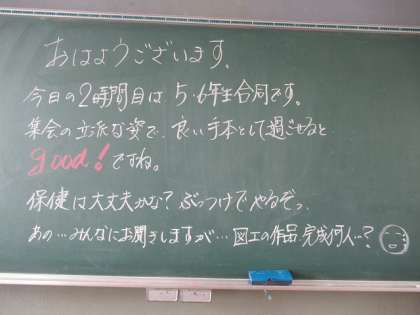 おはようございます。
今日の2時間目は、5・6年生合同です。
集会の立派な姿で、良い手本として過ごせると
good!ですね。
保健は大丈夫かな?ぶっつけでやるぞっ
あの…みんなにお聞きしますが…図工の作品、完成何人…?